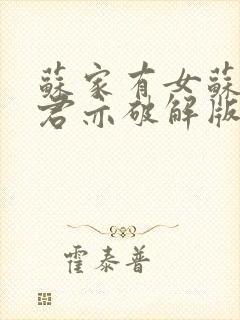 蘇家有女蘇
君亦破解版
霍泰普